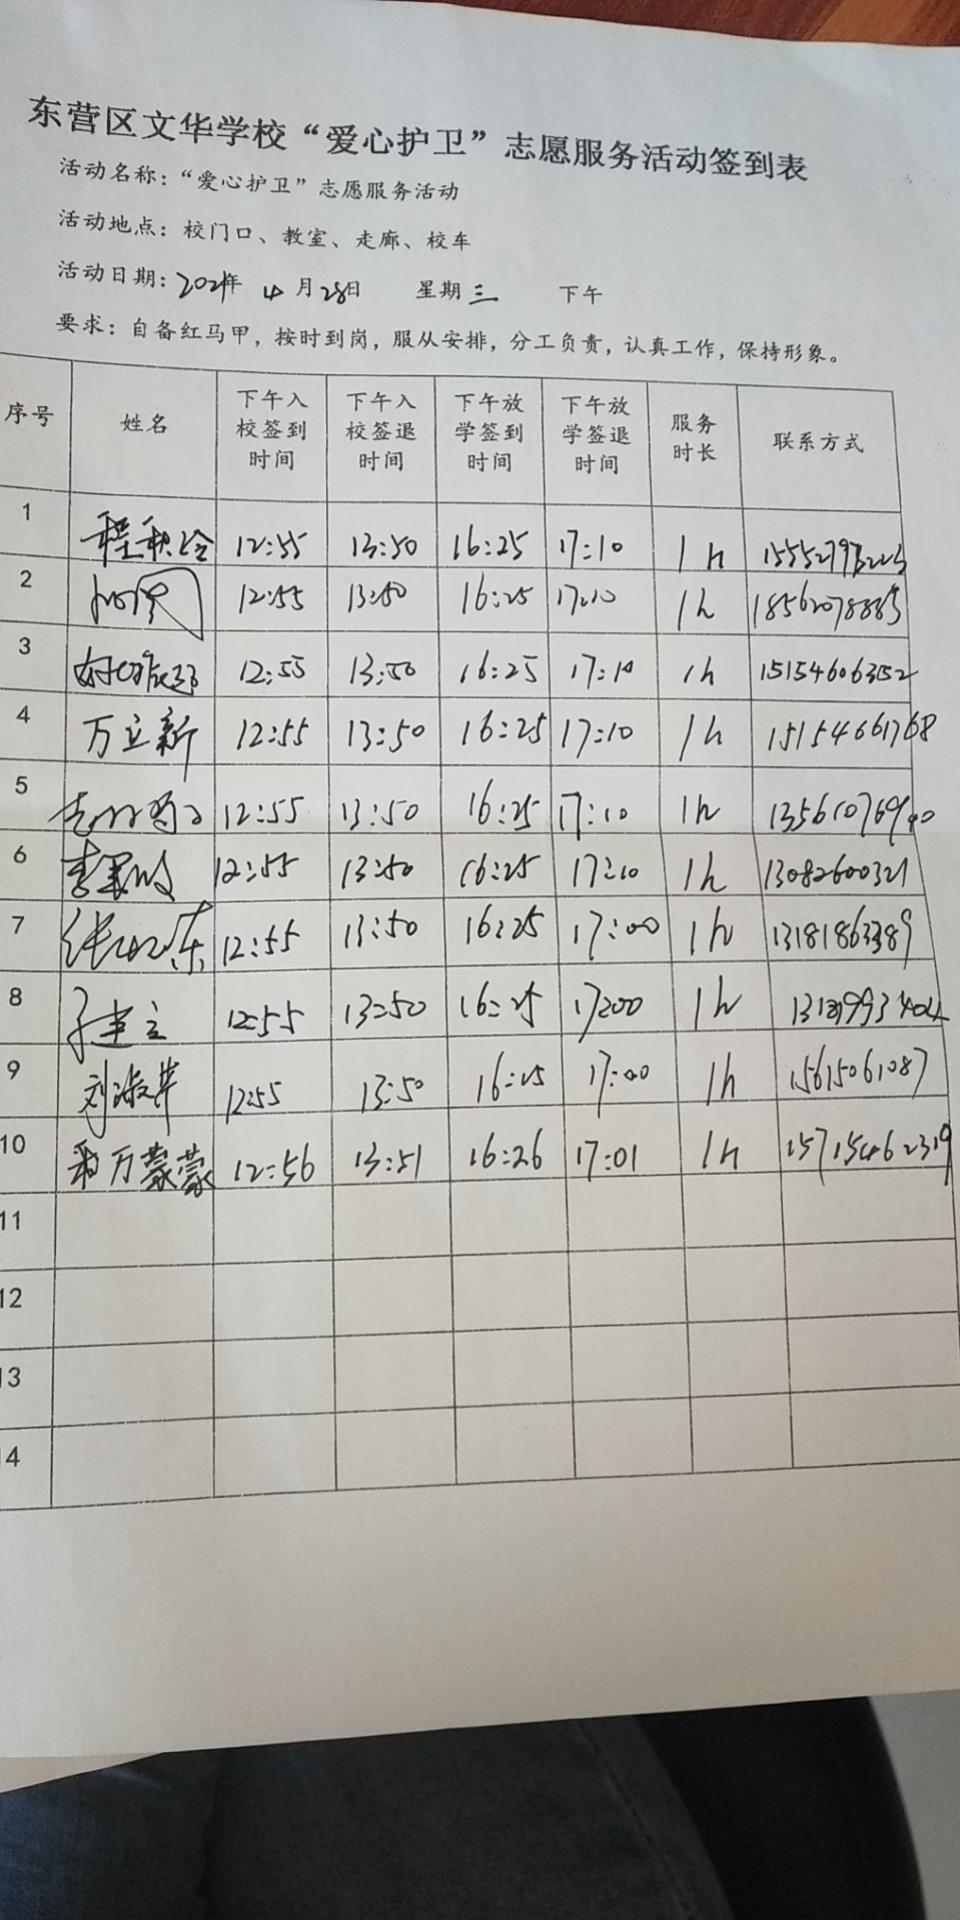 东营区文华学校“爱心护卫”志愿服务活动签到表
活动名称：“爱心护卫”志愿服务活动
活动地点：校门口、教室、走廊、校车
活动日期：2021年 4月28日 星期三 下午
要求：自备红马甲，按时到岗，服从安排，分工负责，认真工作，保持形象。
序号 姓名 下午入校签到时间 下午入校签退时间 下午放学签到时间 下午放学签退时间 服务时长 联系方式
1 12:55 13:50 16:25 17:10 1h
2 12:55 13:50 16:25 17:10 1h
3 12:55 13:50 16:25 17:10 1h
4 万立新 12:55 13:50 16:25 17:10 1h 15154661768
5 12:55 13:50 16:25 17:10 1h
6 12:55 13:50 16:25 17:10 1h 13082600321
7 12:55 13:50 16:25 17:00 1h
8 12:55 13:50 16:25 17:00 1h
9 12:55 13:50 16:25 17:00 1h 15615061087
10 万蒙蒙 12:56 13:51 16:26 17:01 1h 15715462319
11
12
13
14